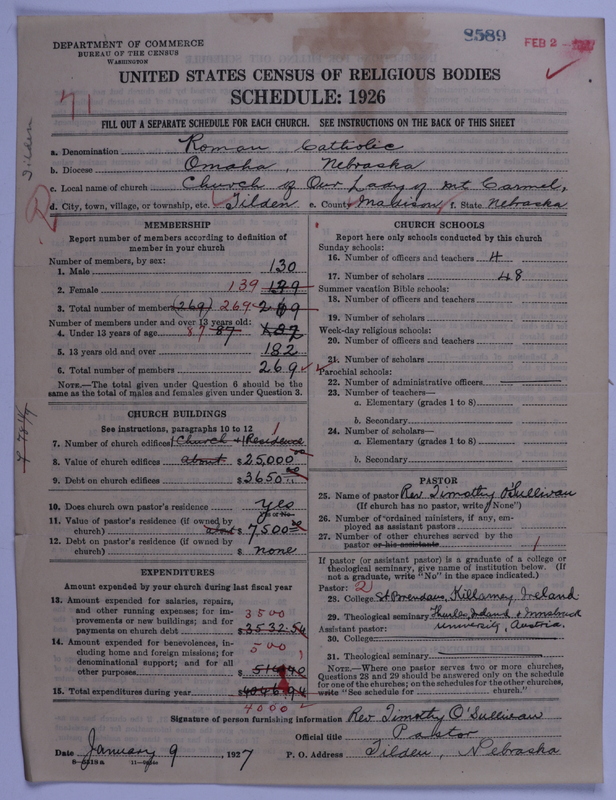 DEPARTMENT OF COMMERCE
BUREAU OF THE CENSUS
WASHINGTON
8589
FEB 2
UNITED STATES CENSUS OF RELIGIOUS BODIES
SCHEDULE: 1926
71
FILL OUT A SEPARATE SCHEDULE FOR EACH CHURCH. SEE INSTRUCTIONS ON THE BACK OF THIS SHEET
Tilden
a. Denomination Roman Catholic
b. Diocese Omaha Nebraska
c. Local name of church Church of Our Lady of Mt Carmel,
d. City, town, village, or township, etc. Tilden e. County Madison f. State Nebraska
MEMBERSHIP
Report number of members according to definition of
member in your church
Number of members, by sex:
1. Male 130
2. Female 139 139
3. Total number of members (269) 269 269
Number of members under and over 13 years old:
4. Under 13 years of age 87 87
5. 13 years old and over 182
6. Total number of members 269
NOTE.—The total given under Question 6 should be
same as the total of males and females given under Question 3.
CHURCH BUILDINGS
See instructions, paragraphs 10 to 12
7. Number of church edifices 1 Church + 1 Residence
8. Value of church edifices about $ 25,000 00
9. Debt on church edifices $ 3650
10. Does church own pastor's residence yes
Yes or No
11. Value of pastor's residence (if owned by
church) about $ 7500 00
12. Debt on pastor's residence (if owned by
church) $ none
EXPENDITURES
Amount expended by your church during last fiscal year
13. Amount expended for salaries, repairs,
and other running expenses; for im-
provements or new buildings; and for
payments on church debt
3500
$ 3532.54
14. Amount expended for benevolences, in-
cluding home and foreign missions; for
denominational support; and for all
other purposes
500
$ 514 40
15. Total expenditures during year $ 4046 94
4000
CHURCH SCHOOLS
Report here only schools conducted by this church
Sunday schools:
16. Number of officers and teachers 4
17. Number of scholars 48
Summer vacation Bible schools:
18. Number of officers and teachers
19. Number of scholars
Week-day religious schools:
20. Number of officers and teachers
21. Number of scholars
Parochial schools:
22. Number of administrative officers
23. Number of teachers—
a. Elementary (grades 1 to 8)
b. Secondary
24. Number of scholars—
a. Elementary (grades 1 to 8)
b. Secondary
PASTOR
25. Name of pastor Rev. Timothy O'Sullivan
(If church has no pastor, write "None")
26. Number of ordained ministers, if any, em-
ployed as assistant pastors
27. Number of other churches served by the
pastor or his assistants 1
If pastor (or assistant pastor) is a graduate of a college or
theological seminary, give name of institution below. (If
not a graduate, write "No" in the space indicated.)
Pastor: 2
28. College St Brendans, Killarney Ireland
29. Theological seminary Thurles Ireland + Innsbruck
University, Austria.
Assistant pastor:
30. College
31. Theological seminary
NOTE.—Where one pastor serves two or more churches,
Questions 28 and 29 should be answered only on the schedule
for one of the churches; on the schedules for the other churches,
write "See schedule for church."
Signature of person furnishing information Rev. Timothy O'Sullivan
Official title Pastor
Date January 9, 1927 P. O. Address Tilden, Nebraska